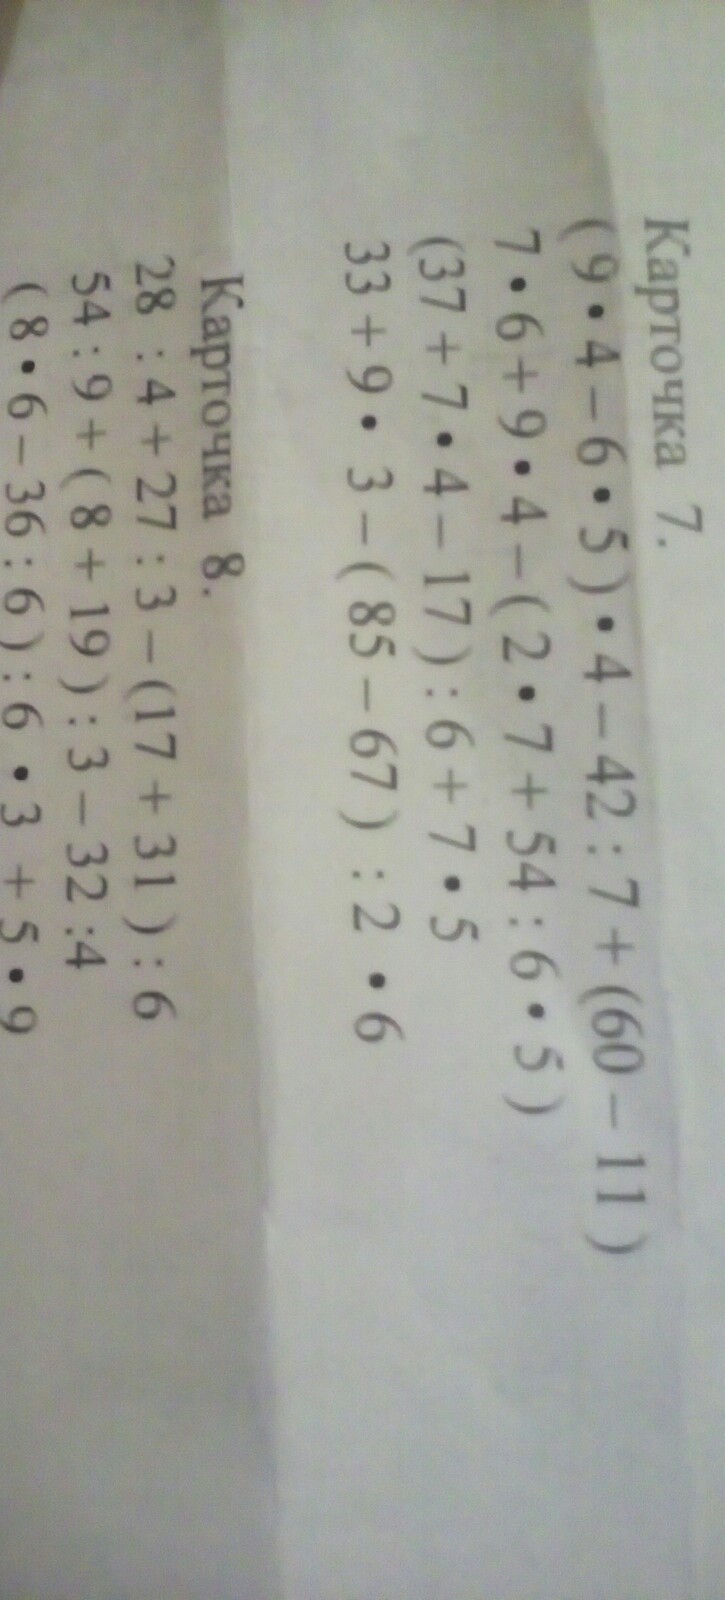 Карточка 7.
(9•4−6•5)•4−42:7+(60−11)
7•6+9•4−(2•7+54:6•5)
(37+7•4−17):6+7•5
33+9•3−(85−67):2•6
Карточка 8.
28:4+27:3−(17+31):6
54:9+(8+19):3−32:4
(8•6−36:6):6•3+5•9